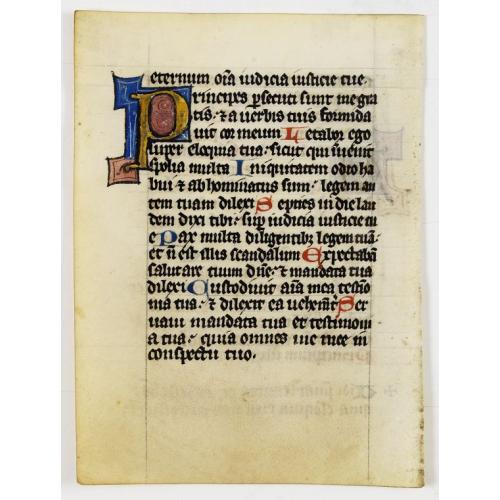 eternum oīa iudicia iusticie tue.
Principes ꝑsecuti sunt me gra
tis: ⁊ a uerbis tuis formida
uit cor meum Letabor ego
super eloquia tua: sicut qui īuenit
spolia multa Iniquitatem odio ha
bui ⁊ abhominatus sum: legem au
tem tuam dilexi Septies in die lau
dem dixi tibi: suꝑ iudicia iusticie tu
e Pax multa diligentibꝫ legem tuā:
et nō est illis scandalum Expectabā
salutare tuum dn̄e: ⁊ mandata tua
dilexi Custodiuit aīa mea testīo
nia tua: ⁊ dilexit ea uehem̄t Ser
uaui mandata tua et testimoni
a tua: quia omnes uie mee in
conspectu tuo.